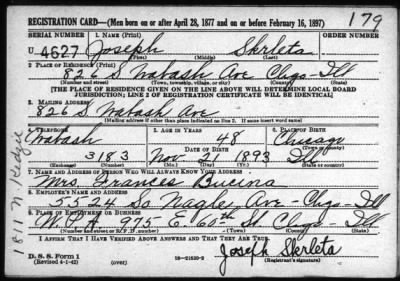 REGISTRATION CARD—(Men born on or after April 28, 1877 and on or before February 16, 1897)
179
SERIAL NUMBER 1. NAME (Print) ORDER NUMBER
U 4627 Joseph Skrleta
(First) (Middle) (Last)
2. PLACE OF RESIDENCE (Print)
826 S Wabash Ave Chgo- Ill
(Number and street) (Town, township, village, or city) (County) (State)
[THE PLACE OF RESIDENCE GIVEN ON THE LINE ABOVE WILL DETERMINE LOCAL BOARD
JURISDICTION; LINE 2 OF REGISTRATION CERTIFICATE WILL BE IDENTICAL]
3. MAILING ADDRESS
826 S Wabash Ave
[Mailing address if other than place indicated on line 2. If same insert word same]
4. TELEPHONE 5. AGE IN YEARS 6. PLACE OF BIRTH
Wabash 48 Chicago
DATE OF BIRTH (Town or county)
3183 Nov 21 1893 Ill
(Exchange) (Number) (Mo.) (Day) (Yr.) (State or country)
7. NAME AND ADDRESS OF PERSON WHO WILL ALWAYS KNOW YOUR ADDRESS
Mrs Frances Bucina
8. EMPLOYER'S NAME AND ADDRESS
5524 So Nagle Ave - Chgo - Ill
9. PLACE OF EMPLOYMENT OR BUSINESS
W.P.A 975 E. 60th St. Chgo - Ill
(Number and street or R. F. D. number) (Town) (County) (State)
I AFFIRM THAT I HAVE VERIFIED ABOVE ANSWERS AND THAT THEY ARE TRUE.
Joseph Skrleta
D. S. S. Form 1
(Revised 4-1-42) (over) 16—21630-2 (Registrant's signature)
1811 N